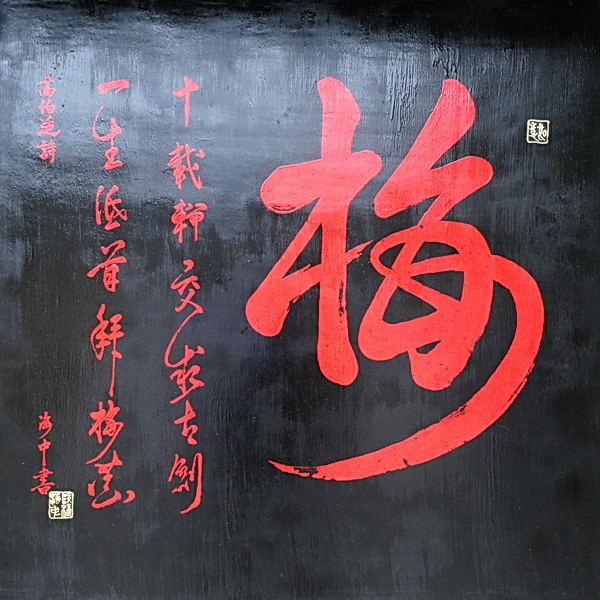 梅
十載輪交求古劍
一生低首拜梅花
高伯芝詩
海中書